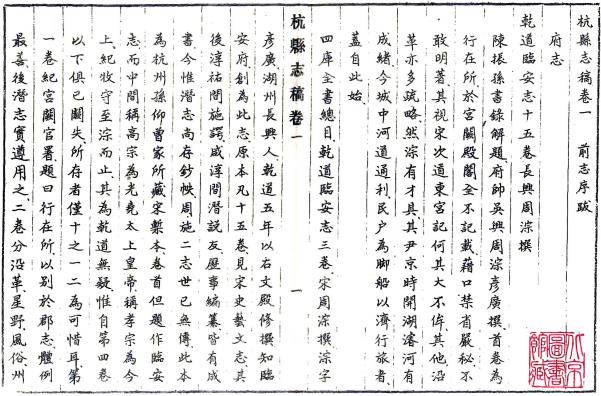 杭縣志稿卷一　前志序跋
府志
乾道臨安志十五卷長興周淙撰
陳振孫書錄解題府帥吳興周淙彥廣撰首卷為
行在所於宮闕殿閣全不記載藉口禁省嚴秘不
敢明著其視宋次道東宮記何其大不侔其他沿
革亦多疏略然淙有才具其尹京時開湖濬河有
成緒今城中河道通利民户為脚船以濟行旅者
蓋自此始
四庫全書總目乾道臨安志三卷宋周淙撰淙字
杭縣志稿卷一　一
彥廣湖州長興人乾道五年以右文殿修撰知臨
安府創為此志原本凡十五卷見宋史藝文志其
後淳祐間施諤咸淳間潛說友歷事編纂皆有成
書今惟潛志尚存鈔帙周施二志世已無傳此本
為杭州孫仰曾家所藏宋槧本卷首但題作臨安
志而中間稱高宗為光堯太上皇帝稱孝宗為今
上紀牧守至淙而止其為乾道無疑惟自第四卷
以下俱已闕失所存者僅十之一二為可惜耳第
一卷紀宮闕官署題曰行在所以别於郡志體例
最善後潛志實遵用之二卷分沿革星野風俗州
北京圖書館藏